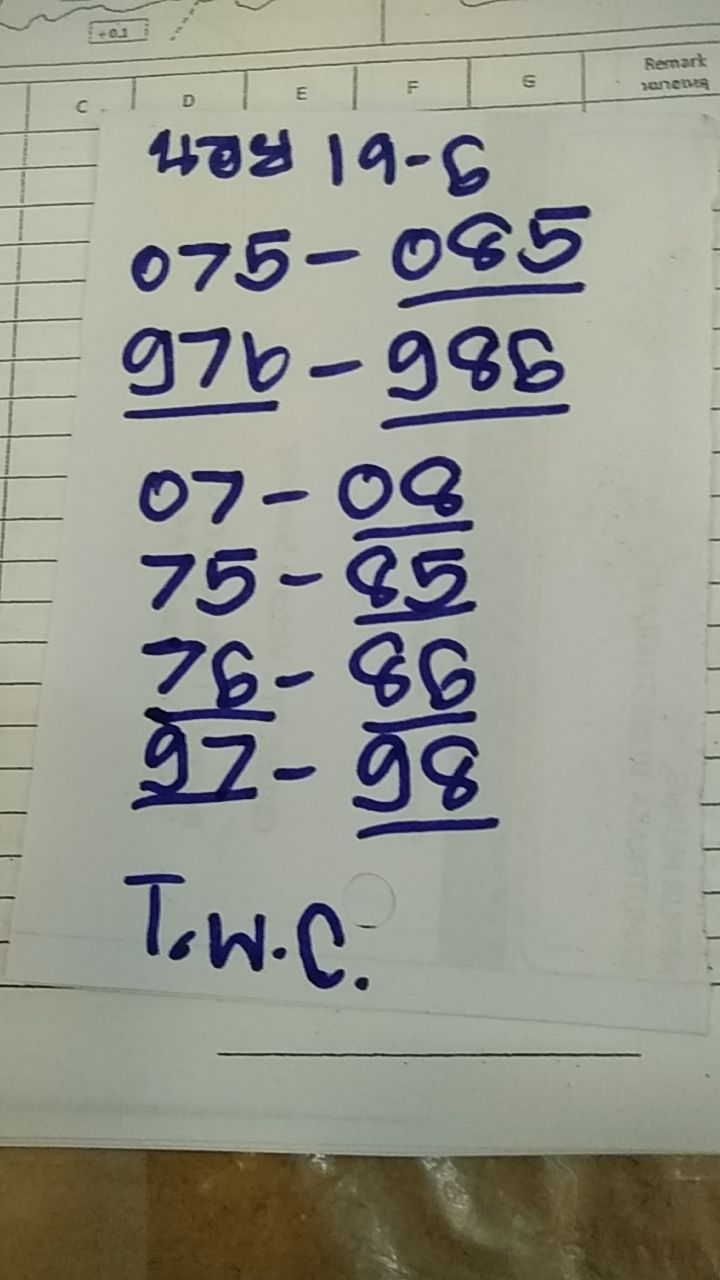 +0.1
C D E F G Remark
หมายเหตุ
075 - 085
976 - 986
07 - 08
75 - 85
76 - 86
97 - 98